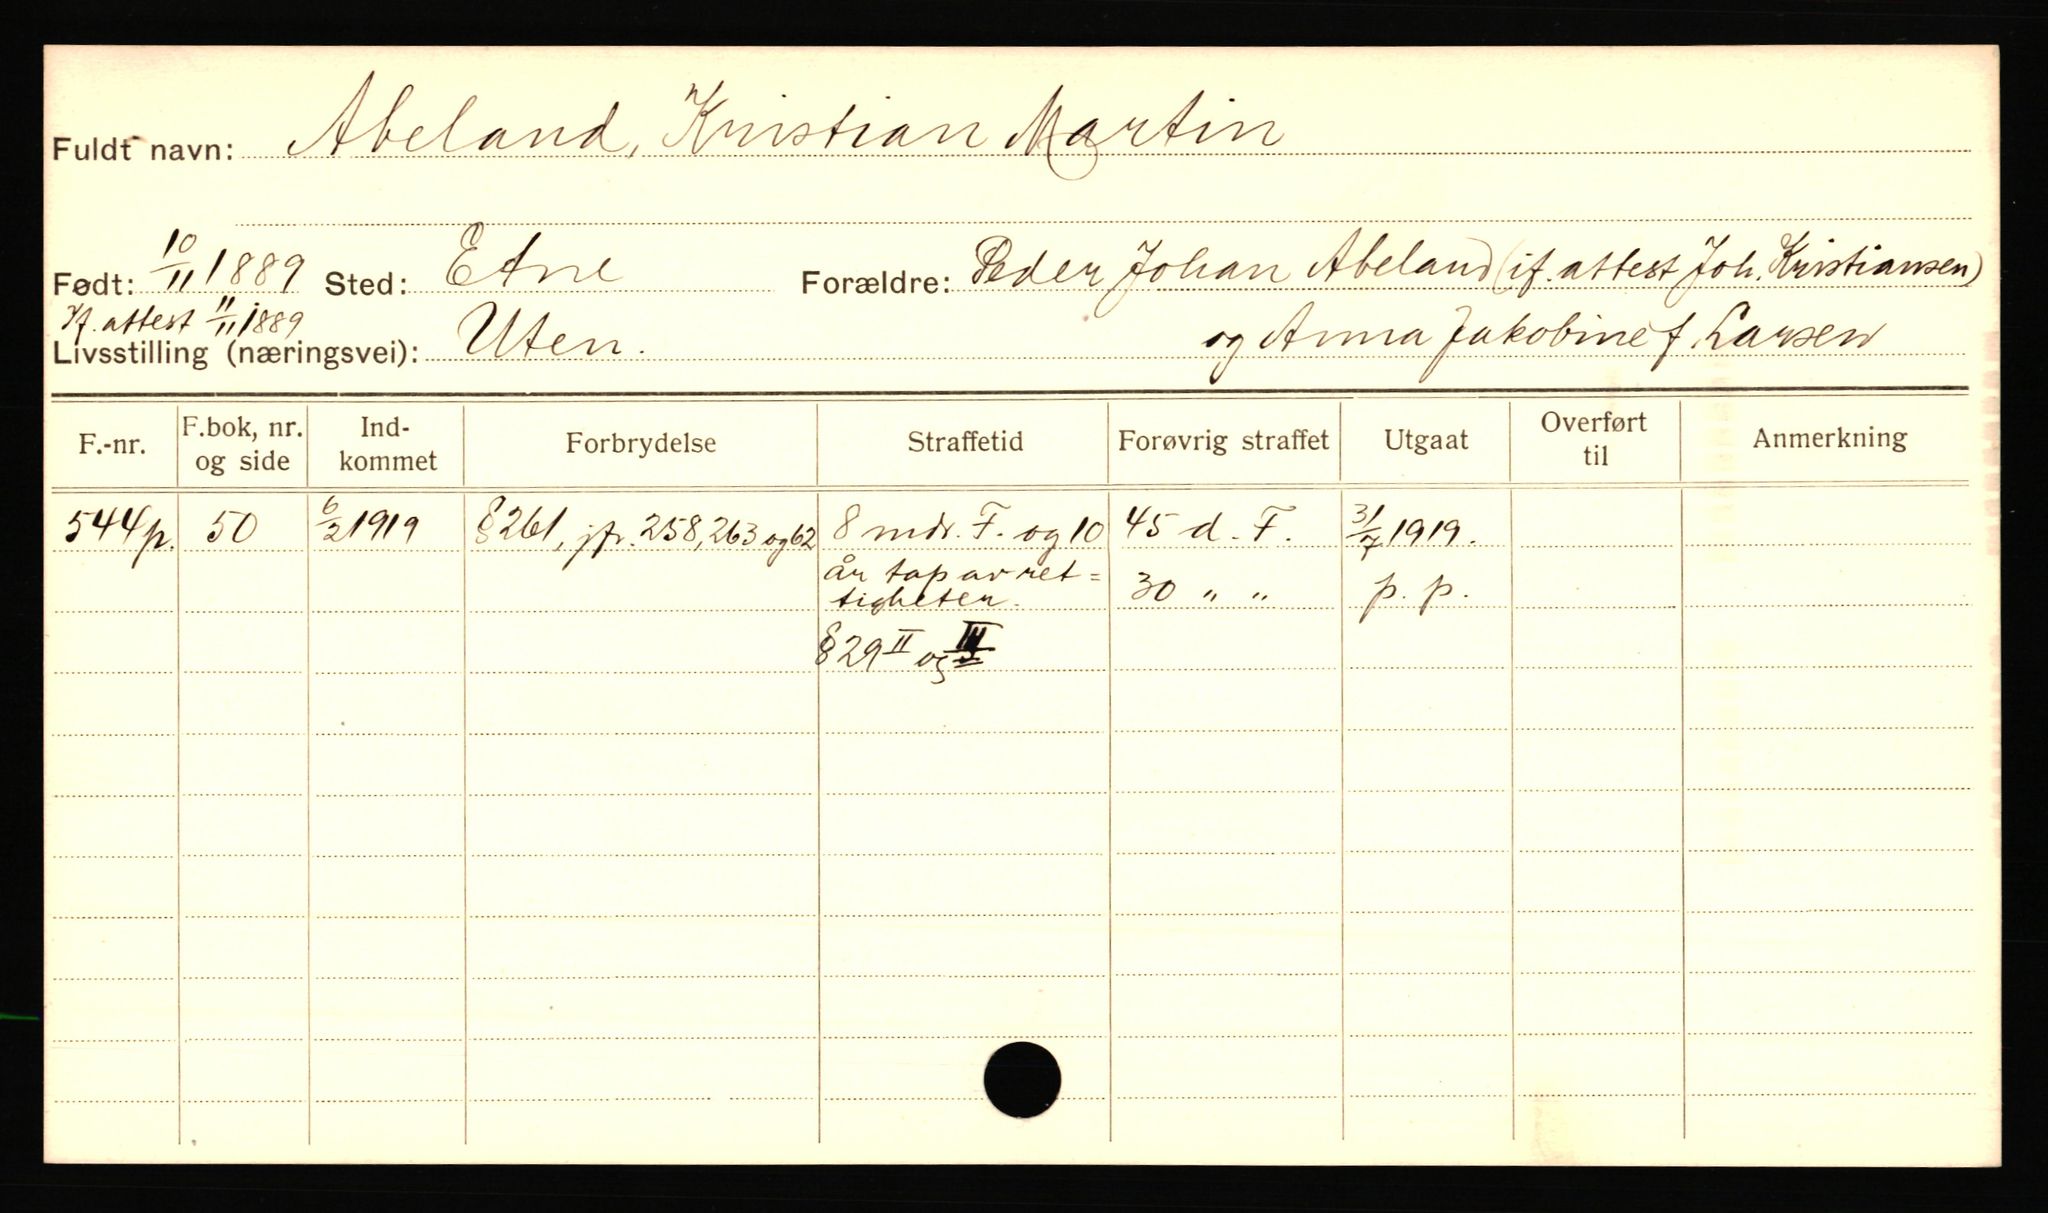 Fuldt navn: Abeland, Kristian Martin
Født: 10/11 1889 Sted: Etne Forældre: Peder Johan Abeland (if. attest Joh. Kristiansen)
If. attest 11/11 1889
Livsstilling (næringsvei): Uten. og Anna Jakobine f. Larsen
F.-nr. F.bok, nr. og side Ind-kommet Forbrydelse Straffetid Forøvrig straffet Utgaat Overført til Anmerkning
544p. 50 6/2 1919 § 261, jfr. 258, 263 og 62 8 mdr. F. og 10 45 d. F. 31/7 1919.
år tap av ret=
tigheter. 30 " " p. p.
§ 29 II og III